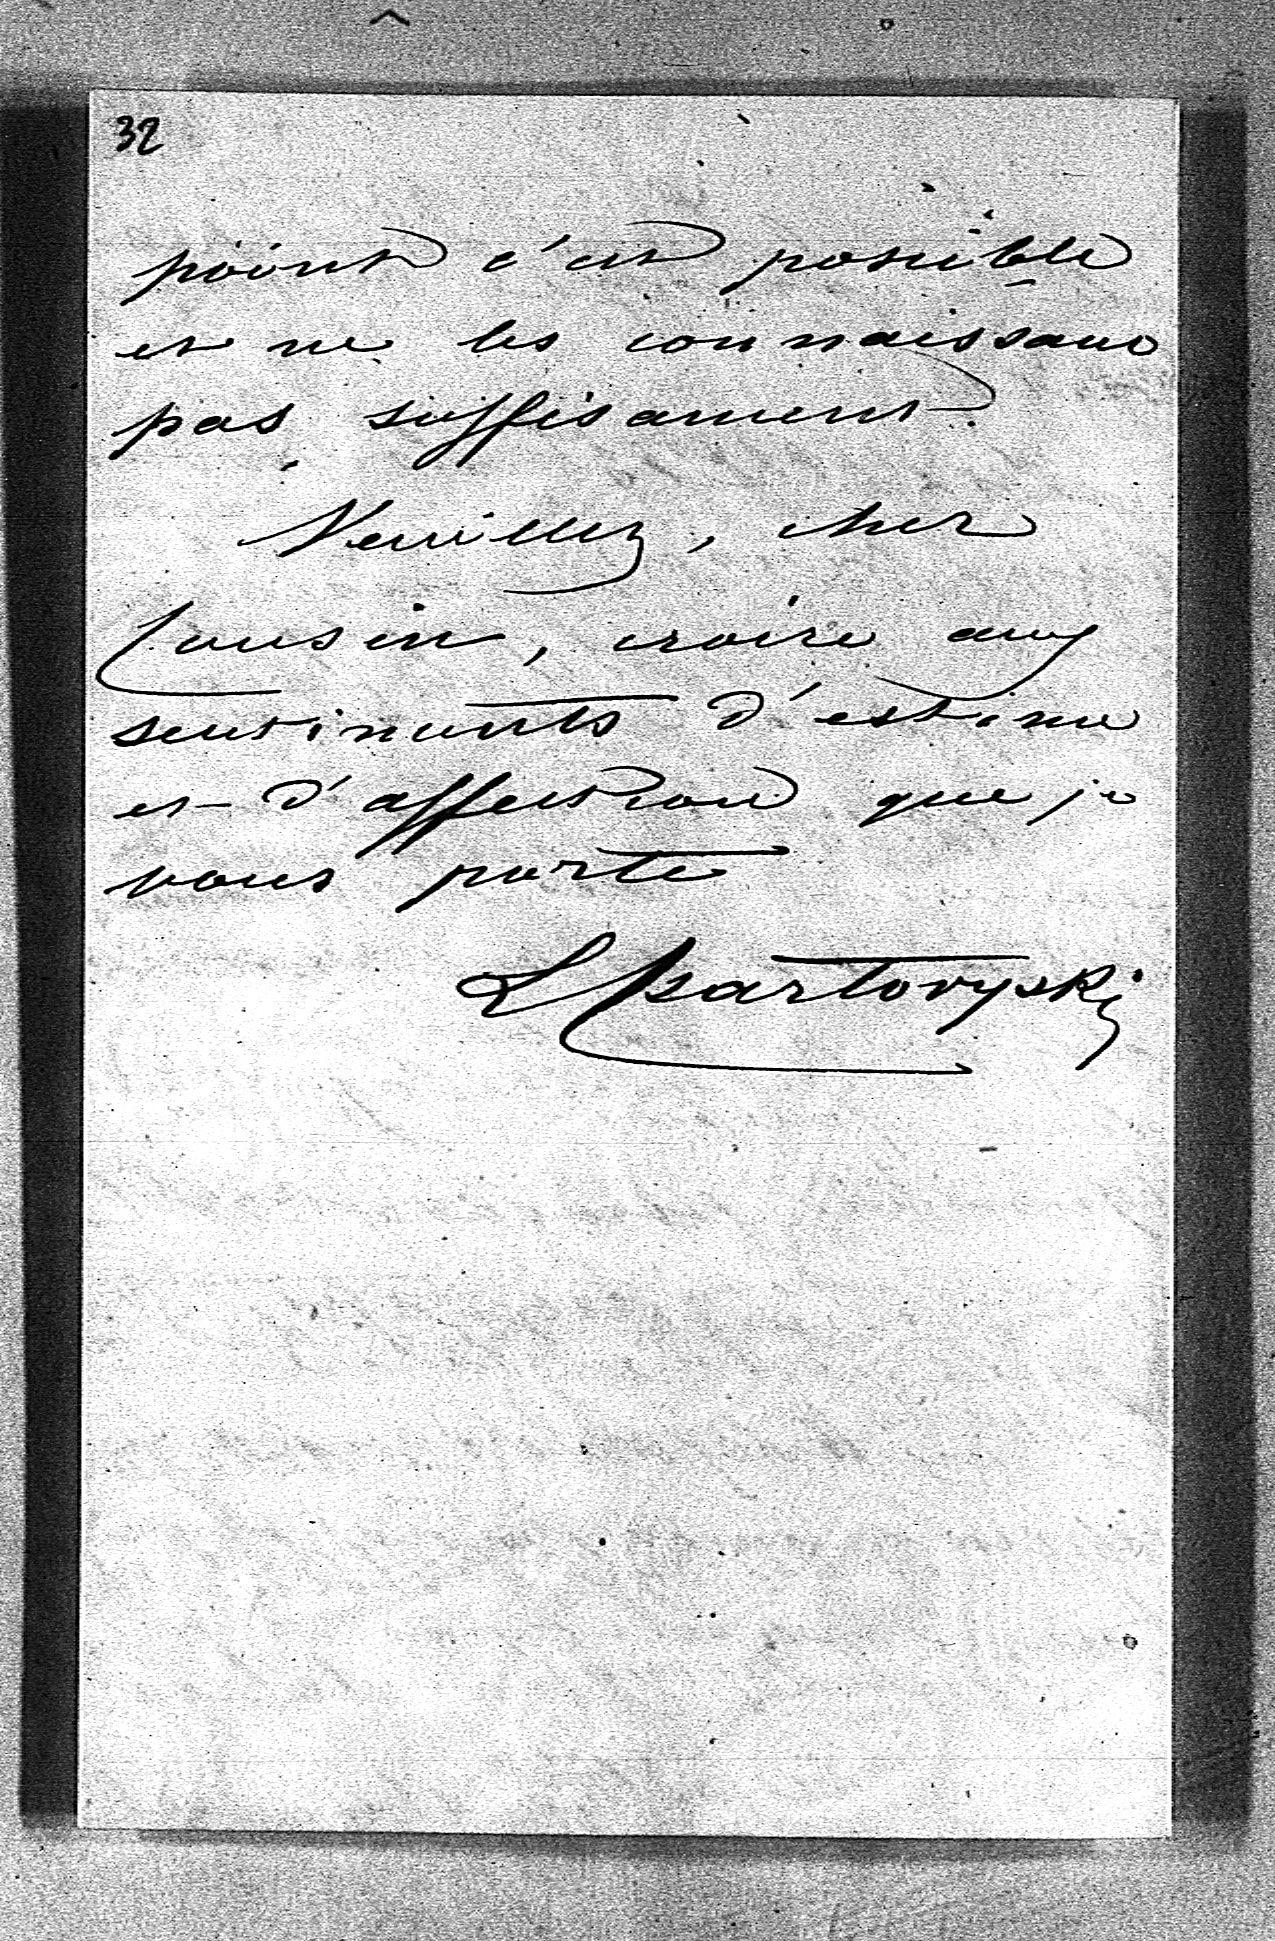 32
point c'est possible
et ne les connaissant
pas suffisament.
Veuillez, cher
Cousin, croire aux
sentiments d'estime
et d'affection que je
vous porte
L Czartoryski